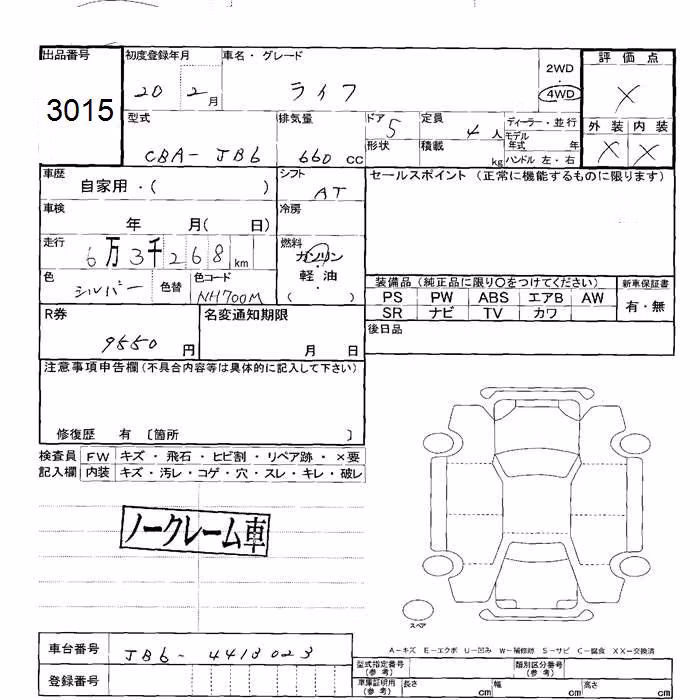 出品番号 初度登録年月 車名・グレード 評価点
3015 20 2月 ライフ 2WD・4WD ×
型式 排気量 ドア 5 定員 4人 ディーラー・並行 外装 内装
CBA-JB6 660cc 形状 積載 kg モデル年式 年 ハンドル 左・右 × ×
車歴 自家用・( ) シフト AT セールスポイント(正常に機能するものに限ります)
車検 年 月( 日) 冷房
走行 6万3千268km 燃料 ガソリン・軽油・( )
色 シルバー 色替 色コード NH700M
装備品(純正品に限り〇をつけてください) 新車保証書
PS PW ABS エアB AW 有・無
SR ナビ TV カワ
R券 9550円 名変通知期限 月 日 後日品
注意事項申告欄(不具合内容等は具体的に記入して下さい)
修復歴 有 〔箇所 〕
検査員 FW キズ・飛石・ヒビ割・リペア跡・×要
記入欄 内装 キズ・汚レ・コゲ・穴・スレ・キレ・破レ
ノークレーム車
スペア
A-キズ E-エクボ U-凹み W-補修跡 S-サビ C-腐食 XX-交換済
車台番号 JB6-4413023
型式指定番号(参考) 類別区分番号(参考)
登録番号 車庫証明用(参考) 長さ cm 幅 cm 高さ cm